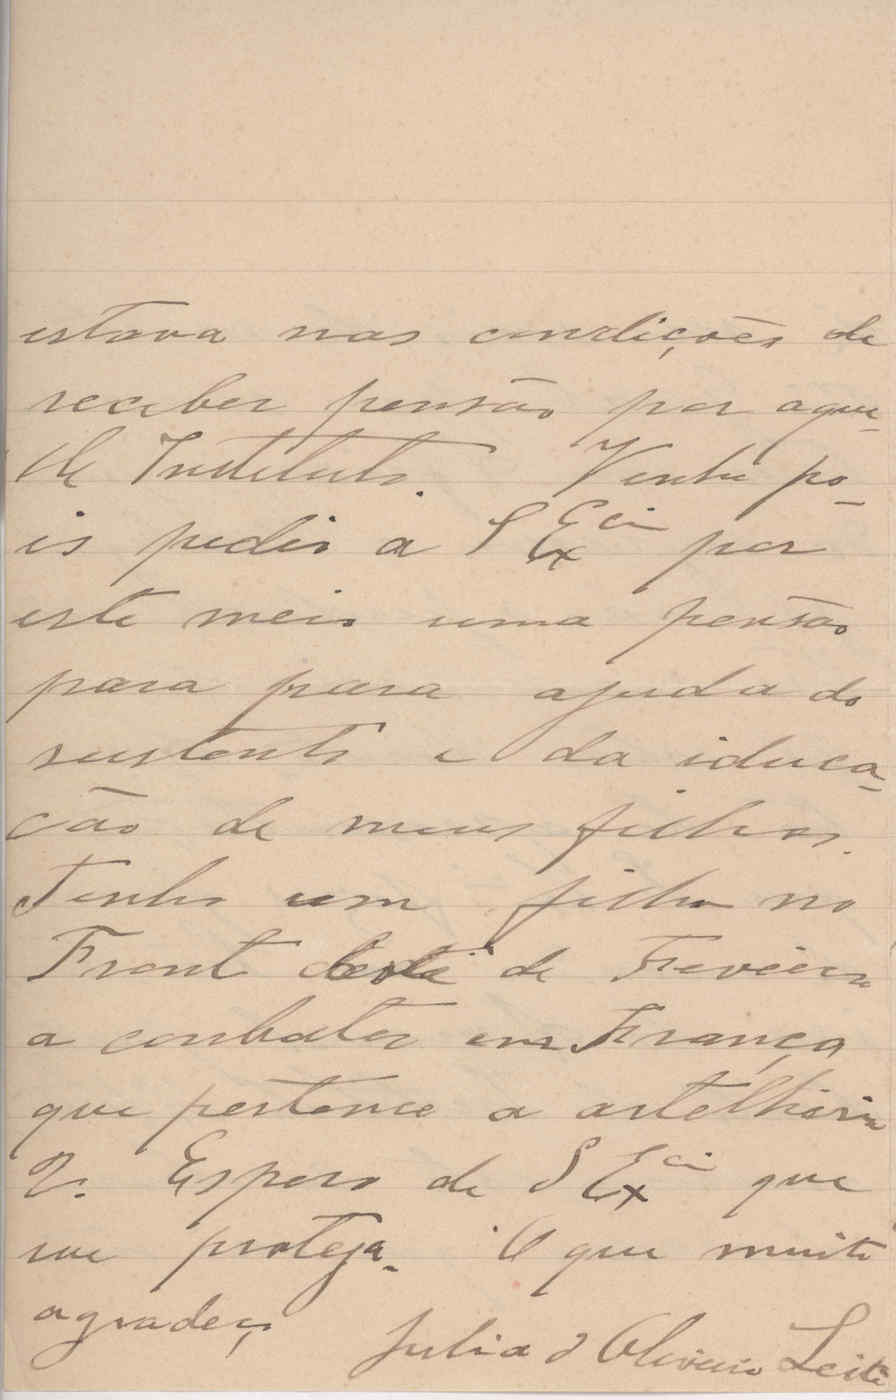 estava nas condições de
receber pensão por aque-
lle Instituto. Venho po-
is pedir a S Ex.cia por
este meio uma pensão
para para ajuda do
sustento e da iduca-
ção de meus filhos.
Tenho um filho no
Front desde de Fevereiro
a conbater em França
que pertence a artelharia
2. Espero de S Ex.cia que
me proteja. O que muito
agradeço
Julia d'Oliveira Leite